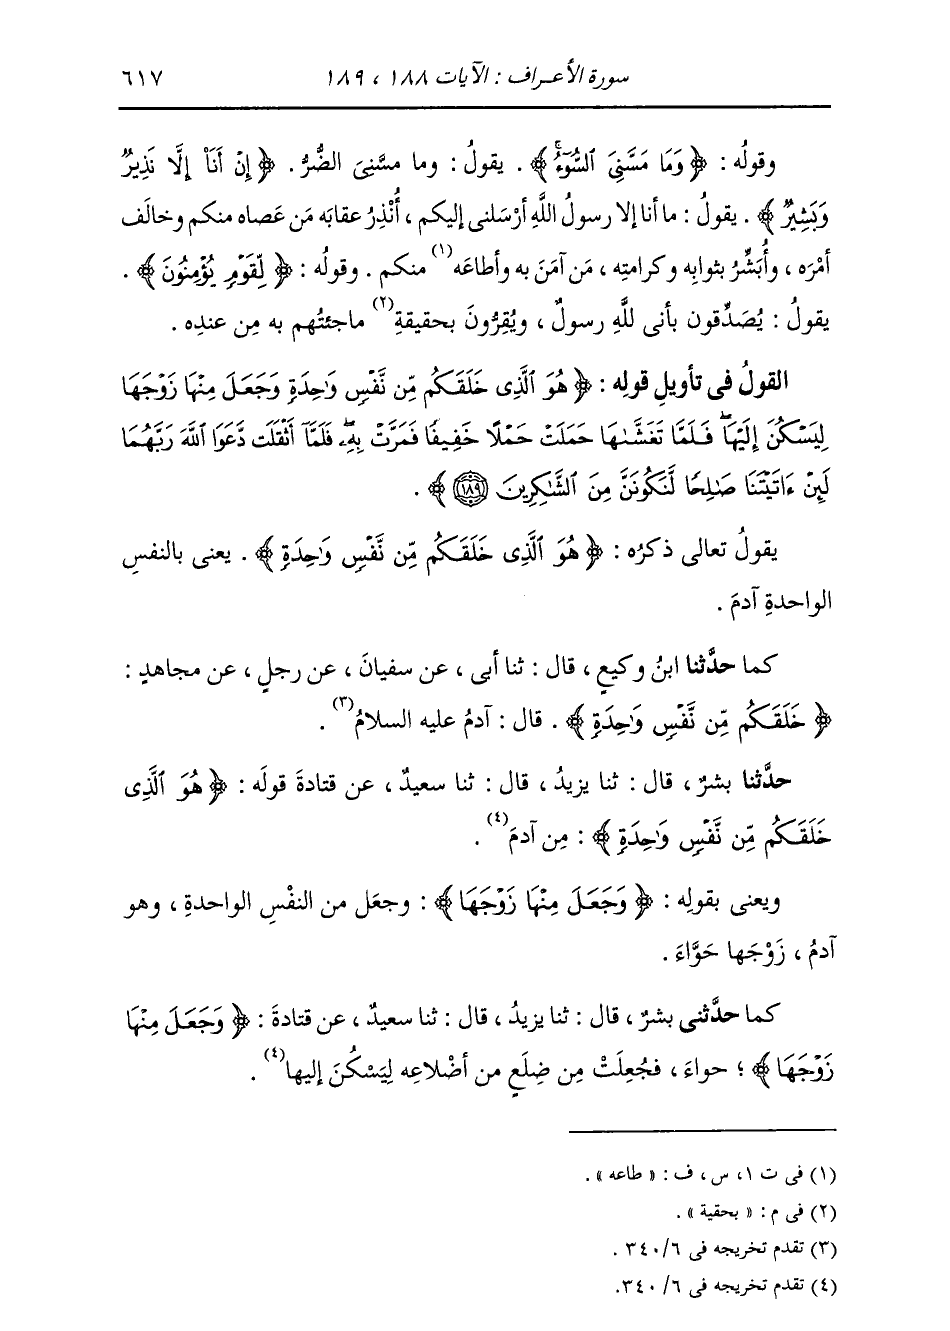 سورة الأعراف : الآيات ١٨٨ ، ١٨٩ ٦١٧
وقولُه : ﴿ وَمَا مَسَّنِىَ ٱلسُّوٓءُ ﴾ . يقولُ : وما مسَّنِىَ الضُّرُّ . ﴿ إِنْ أَنَا۠ إِلَّا نَذِيرٌ
وَبَشِيرٌ ﴾ . يقولُ : ما أنا إلا رسولُ اللَّهِ أرْسَلنى إليكم ، أُنْذِرُ عقابَه مَن عَصاه منكم وخالَف
أمْرَه ، وأُبَشِّرُ بثوابِه وكرامتِه ، مَن آمَنَ به وأطاعَه(١) منكم . وقولُه : ﴿ لِّقَوْمٍ يُؤْمِنُونَ ﴾ .
يقولُ : يُصَدِّقون بأنى للَّهِ رسولٌ ، ويُقِرُّونَ بحقيقةِ(٢) ماجئتُهم به مِن عندِه .
القولُ فى تأويلِ قولِه : ﴿ هُوَ ٱلَّذِى خَلَقَكُم مِّن نَّفْسٍ وَٰحِدَةٍ وَجَعَلَ مِنْهَا زَوْجَهَا
لِيَسْكُنَ إِلَيْهَا ۖ فَلَمَّا تَغَشَّىٰهَا حَمَلَتْ حَمْلًا خَفِيفًا فَمَرَّتْ بِهِۦ ۖ فَلَمَّآ أَثْقَلَت دَّعَوَا ٱللَّهَ رَبَّهُمَا
لَئِنْ ءَاتَيْتَنَا صَٰلِحًا لَّنَكُونَنَّ مِنَ ٱلشَّٰكِرِينَ ١٨٩ ﴾ .
يقولُ تعالى ذكرُه : ﴿ هُوَ ٱلَّذِى خَلَقَكُم مِّن نَّفْسٍ وَٰحِدَةٍ ﴾ . يعنى بالنفسِ
الواحدةِ آدمَ .
كما حدَّثنا ابنُ وكيعٍ ، قال : ثنا أبى ، عن سفيانَ ، عن رجلٍ ، عن مجاهدٍ :
﴿ خَلَقَكُم مِّن نَّفْسٍ وَٰحِدَةٍ ﴾ . قال : آدمُ عليه السلامُ(٣) .
حدَّثنا بشرٌ ، قال : ثنا يزيدُ ، قال : ثنا سعيدٌ ، عن قتادةَ قولَه : ﴿ هُوَ ٱلَّذِى
خَلَقَكُم مِّن نَّفْسٍ وَٰحِدَةٍ ﴾ : مِن آدمَ(٤) .
ويعنى بقولِه : ﴿ وَجَعَلَ مِنْهَا زَوْجَهَا ﴾ : وجعَل من النفْسِ الواحدةِ ، وهو
آدمُ ، زَوْجَها حَوَّاءَ .
كما حدَّثنى بشرٌ ، قال : ثنا يزيدُ ، قال : ثنا سعيدٌ ، عن قتادةَ : ﴿ وَجَعَلَ مِنْهَا
زَوْجَهَا ﴾ ؛ حواءَ ، فجُعِلَتْ مِن ضِلَعٍ من أضْلاعِه لِيَسْكُنَ إليها(٤) .
(١) فى ت ١، س ، ف : « طاعه » .
(٢) فى م : « بحقية » .
(٣) تقدم تخريجه فى ٦/ ٣٤٠ .
(٤) تقدم تخريجه فى ٦/ ٣٤٠.